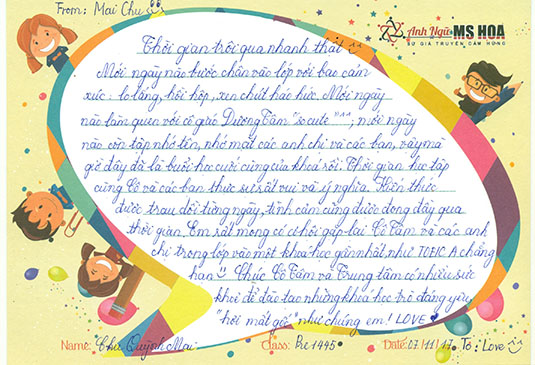 From: Mai Chu
Anh Ngữ MS HOA
SỨ GIẢ TRUYỀN CẢM HỨNG
Thời gian trôi qua nhanh thật
Mới ngày nào bước chân vào lớp với bao cảm
xúc: lo lắng, hồi hộp, xen chút háo hức. Mới ngày
nào làm quen với cô giáo Dương Tâm "so cute" ^^; mới ngày
nào còn tập nhớ tên, nhớ mặt các anh chị và các bạn, vậy mà
giờ đây đã là buổi học cuối cùng của khoá rồi. Thời gian học tập
cùng Cô và các bạn thực sự rất vui và ý nghĩa. Kiến thức
được trau dồi từng ngày, tình cảm cũng được đong đầy qua
thời gian. Em rất mong có cơ hội gặp lại Cô Tâm và các anh
chị trong lớp vào một khoá học gần nhất, như TOEIC A chẳng
hạn. Chúc Cô Tâm và Trung tâm có nhiều sức
khỏe để đào tạo những khoá học trò đáng yêu,
"hơi mất gốc" như chúng em! LOVE
Name: Chu Quỳnh Mai Class: Pre 1445 Date: 07/11/17 To: Love